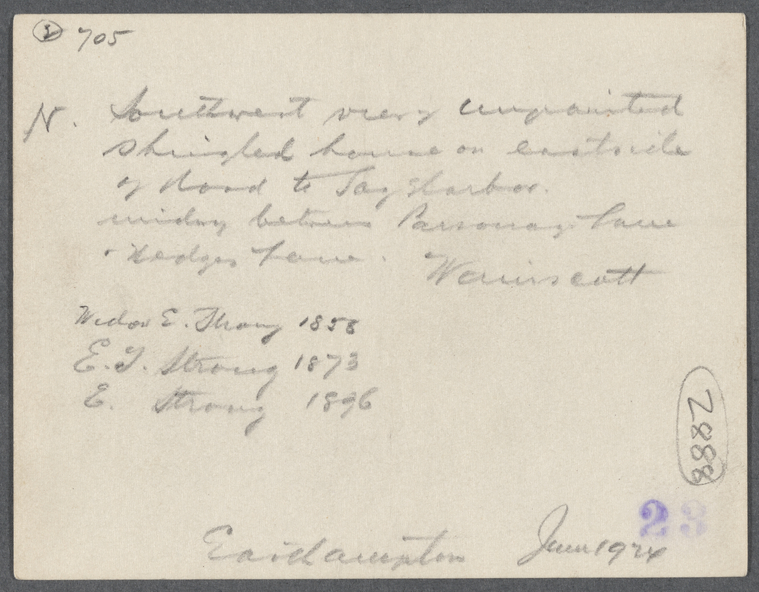 2 705
N. Southwest view of unpainted
shingled house on eastside
of Road to Sag Harbor.
midway between Parsonage Lane
+ Hedges Lane. Wainscott
Widow E. Strong 1858
E. T. Strong 1873
E. Strong 1896
2888
23
Easthampton June 1924